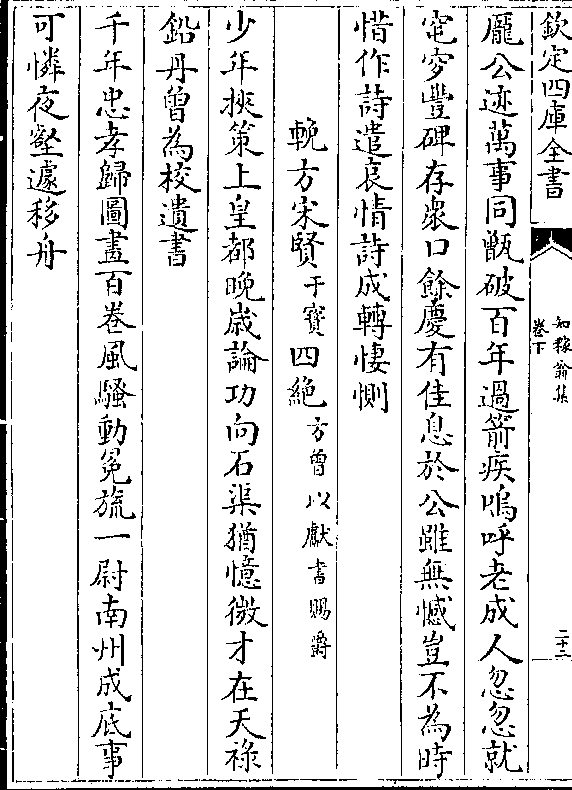 欽定四庫全書
知稼翁集
卷下
二十二
龎公迹萬事同甑破百年過箭疾嗚呼老成人忽忽就
窀穸豐碑存衆口餘慶有佳息於公雖無憾豈不為時
惜作詩遣哀情詩成轉悽惻
輓方宋賢于寳四絶方曾以獻書賜爵
少年挾策上皇都晩歳論功向石渠猶憶微才在天禄
鉛丹曾為校遺書
千年忠孝歸圖畫百卷風騷動冕旒一尉南州成底事
可憐夜壑遽移舟